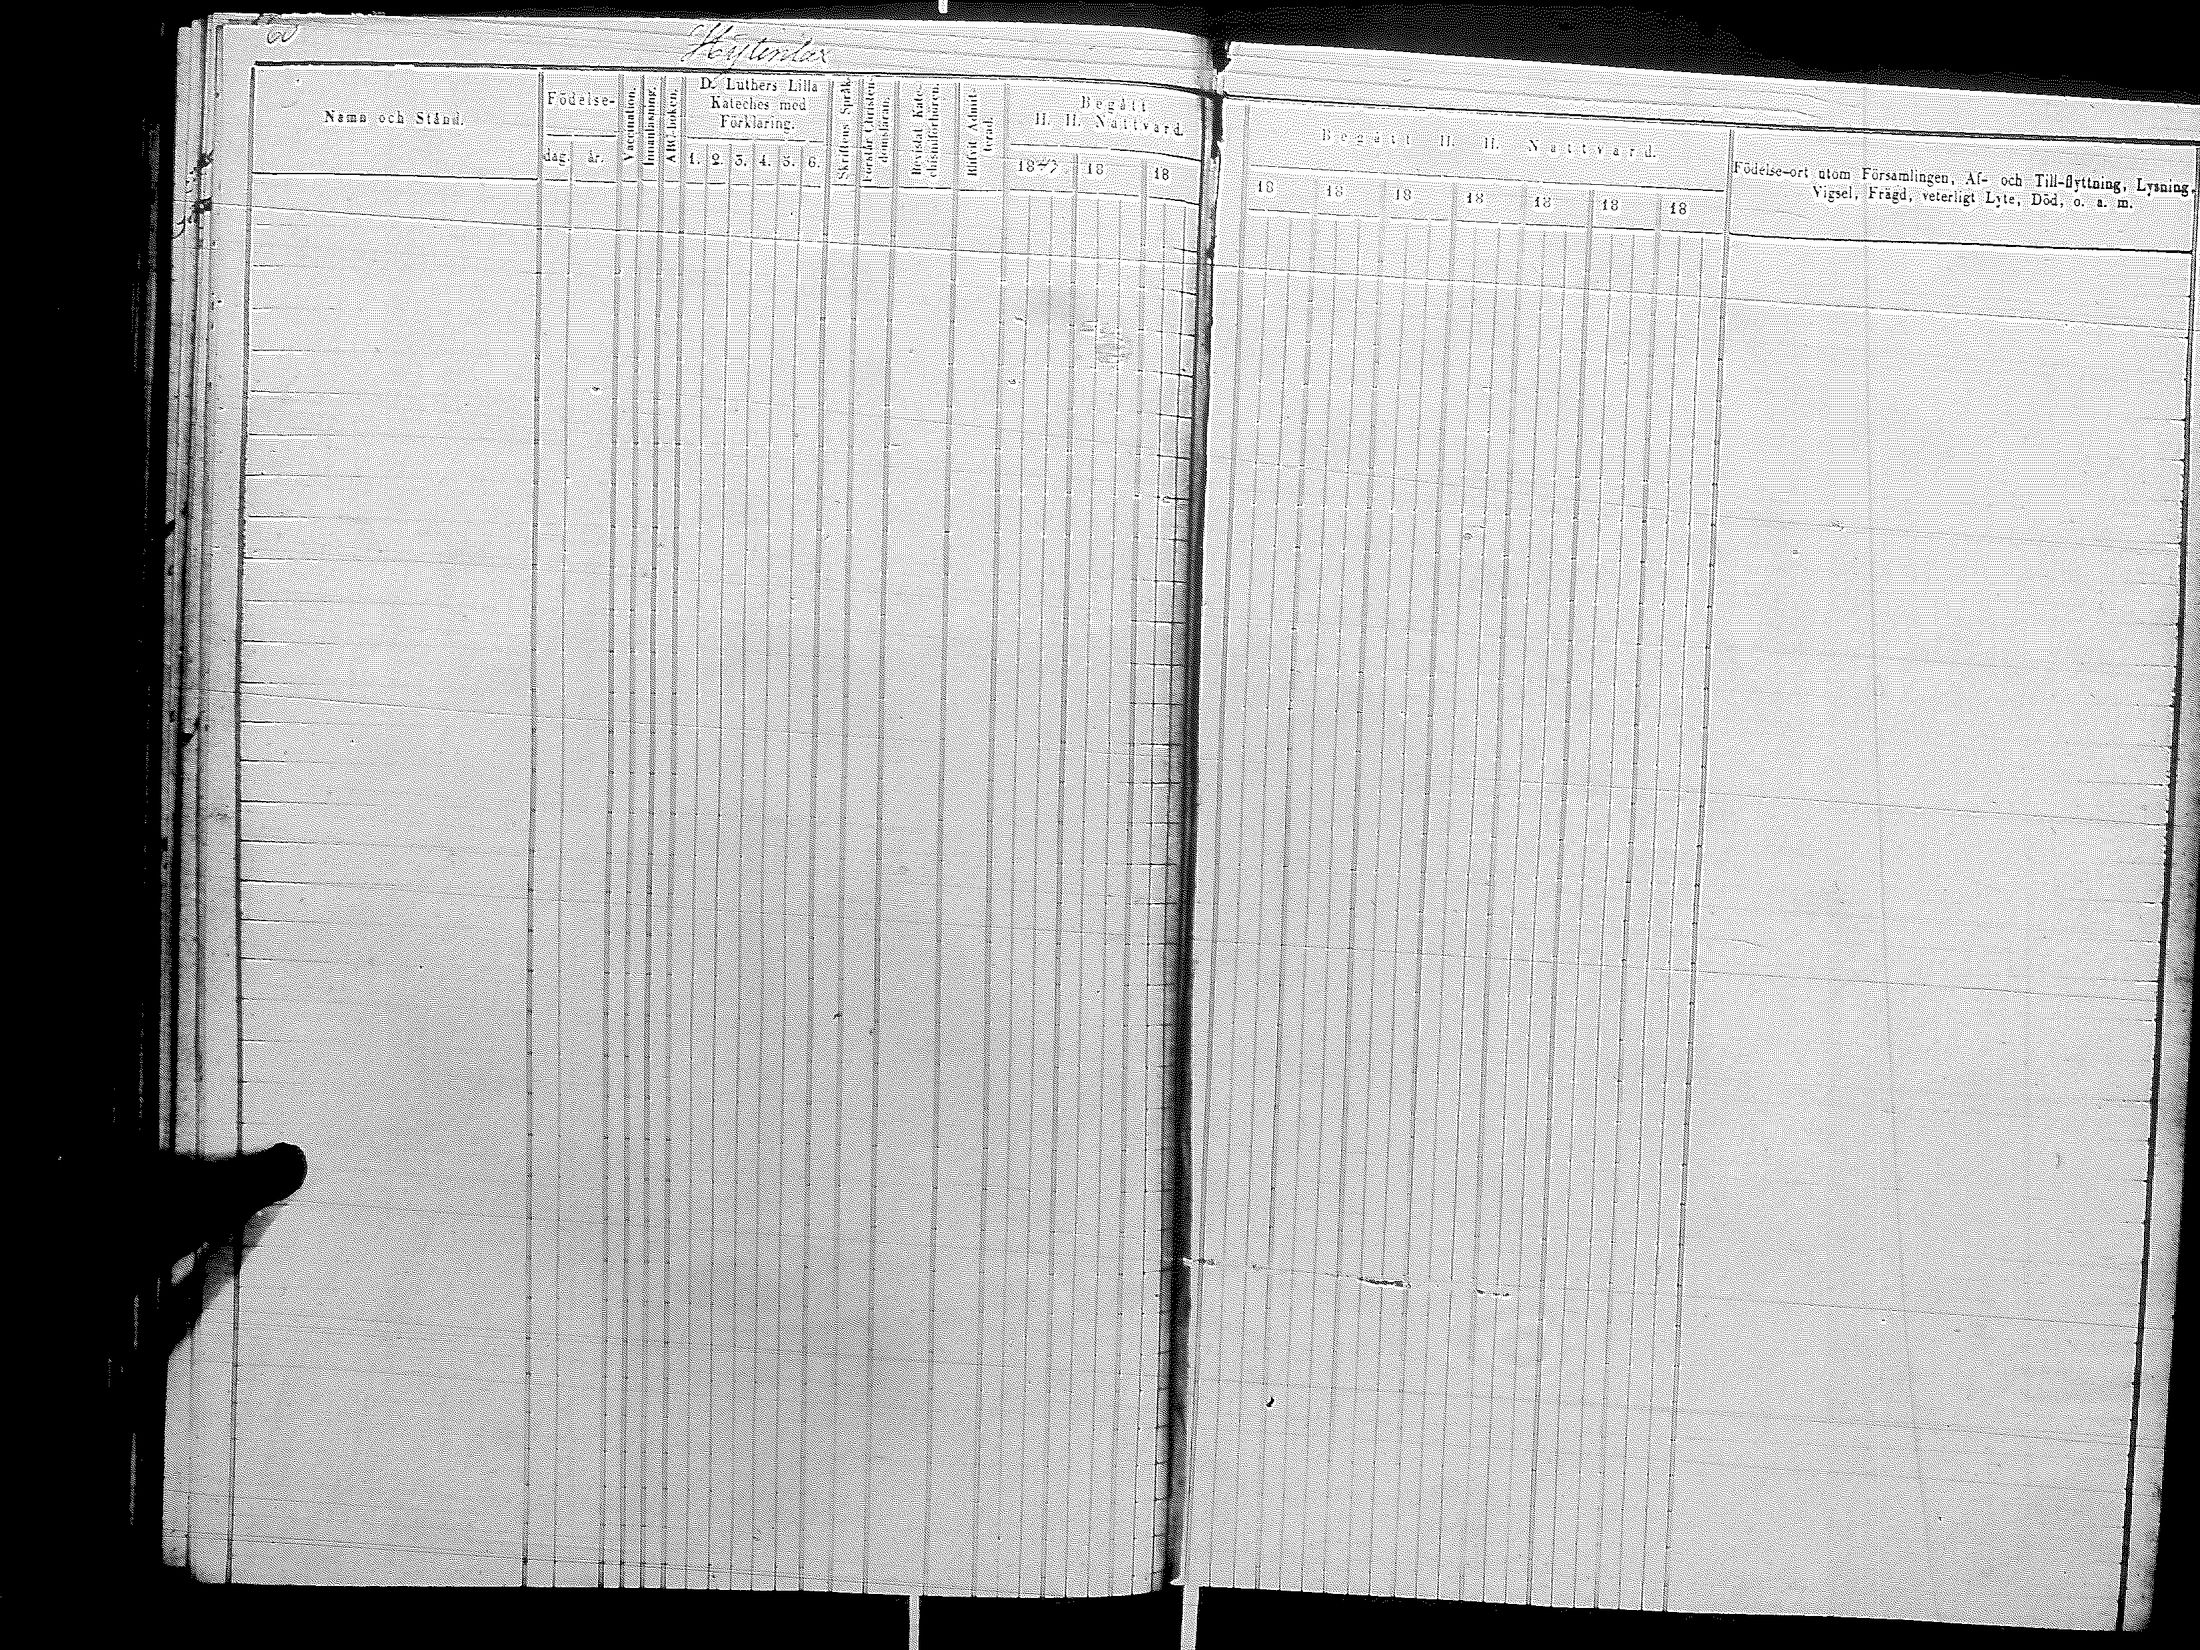 60
Hytenlax
Namn och Stånd.
Födelse-
dag.
år.
Vaccination.
Innanläsning.
ABC-boken.
D. Luthers Lilla
Kateches med
Förklaring.
1. 2. 3. 4. 5. 6.
Skriftens Språk.
Förstår Christen-
domsläran.
Bevistat Kate-
chismiförhören.
Blifvit Admit-
terad.
Begått
H. H. Nattvard.
1873. 18 18
Begått H. H. Nattvard.
18 18 18 18 18 18 18
Födelse-ort utom Församlingen, Af- och Till-flyttning, Lysning,
Vigsel, Frägd, veterligt Lyte, Död, o. a. m.